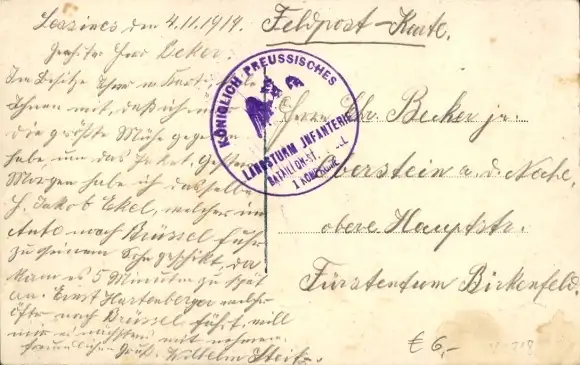 Lessines den 4.11.1914.
Feldpost-Karte.
Geehrter Herr Beker.
Ihnen mit, daß ich mir
die größte Mühe gegeben
habe um das Paket. Gestern
Morgen habe ich dasselbe
H. Jakob Ekel, welcher im
Auto nach Brüssel fuhr
zu seinem Sohn geschikt, da
kam es 5 Minuten zu spät
an. Ernst Hartenberger welcher
öfter nach Brüssel fährt, will
mit nehmen.
freundlichen Gruß. Wilhelm
KÖNIGLICH PREUSSISCHES
LANDSTURM INFANTERIE
BATAILLON ST
1 KOMPAGNIE
Herrn Chr. Becker jr.
Oberstein a. d. Nahe,
obere Hauptstr.
Fürstentum Birkenfeld.
€ 6,-